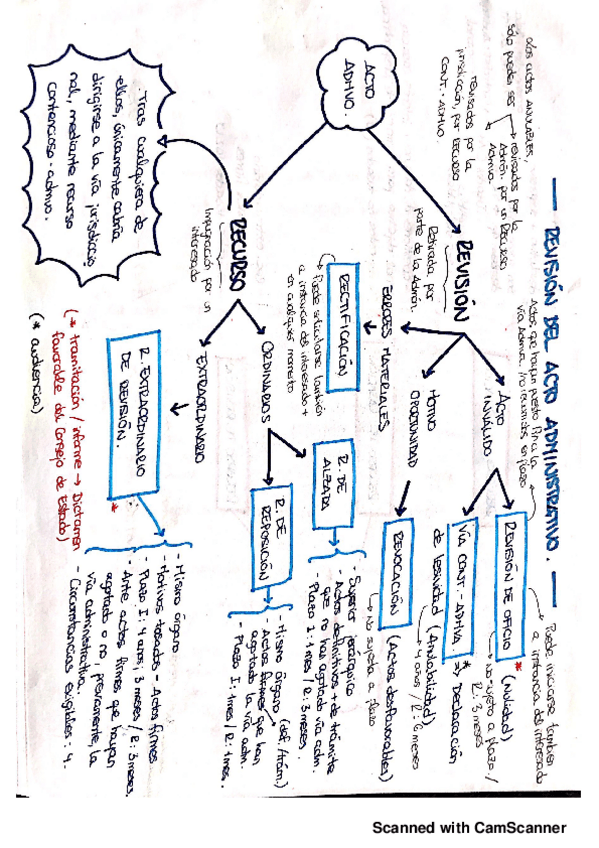 — REVISIÓN DEL ACTO ADMINISTRATIVO. —
Los actos ANULABLES,
sólo pueden ser → revisados por la
Admón. por un Recurso
Admvo.
revisados por la
jurisdicción, por recurso
CONT. ADMVO
Actos que hayan puesto fin a la
vía Admva. / no recurridos en plazo
Puede iniciarse también
a instancia del interesado
ACTO
ADMVO.
REVISIÓN
Retirada por
parte de la Admón.
ACTO
INVÁLIDO
REVISIÓN DE OFICIO * (Nulidad)
→ no sujeto a plazo /
R: 3 meses
VÍA CONT.-ADMVA * ⇒ Declaración
de lesividad (Anulabilidad)
4 años / R: 6 meses
MOTIVO
OPORTUNIDAD
REVOCACIÓN (Actos desfavorables)
→ No sujeta a plazo
ERRORES MATERIALES
RECTIFICACIÓN
→ Puede articularse también
a instancia del interesado +
en cualquier momento
RECURSO
Impugnación por un
interesado
ORDINARIOS
R. DE
ALZADA
- Superior jerárquico
- Actos definitivos + de trámite
que no han agotado vía adm.
- Plazo I: 1 mes / R: 3 meses
R. DE
REPOSICIÓN
- Mismo órgano (def./trám)
- Actos firmes que han
agotado la vía adm.
- Plazo I: 1 mes / R: 1 mes.
EXTRAORDINARIO
R. EXTRAORDINARIO
DE REVISIÓN. *
- Mismo órgano
- Motivos tasados - Actos firmes
- Plazo I: 4 años; 3 meses / R: 3 meses
- Ante actos firmes que hayan
agotado o no, previamente, la
vía administrativa.
- Circunstancias exigibles: 4.
. Tras cualquiera de
ellos, únicamente cabría
dirigirse a la vía jurisdiccio
nal, mediante recurso
contencioso-admvo.
(* tramitación / informe → Dictamen
favorable del Consejo de Estado)
(* audiencia)
Scanned with CamScanner